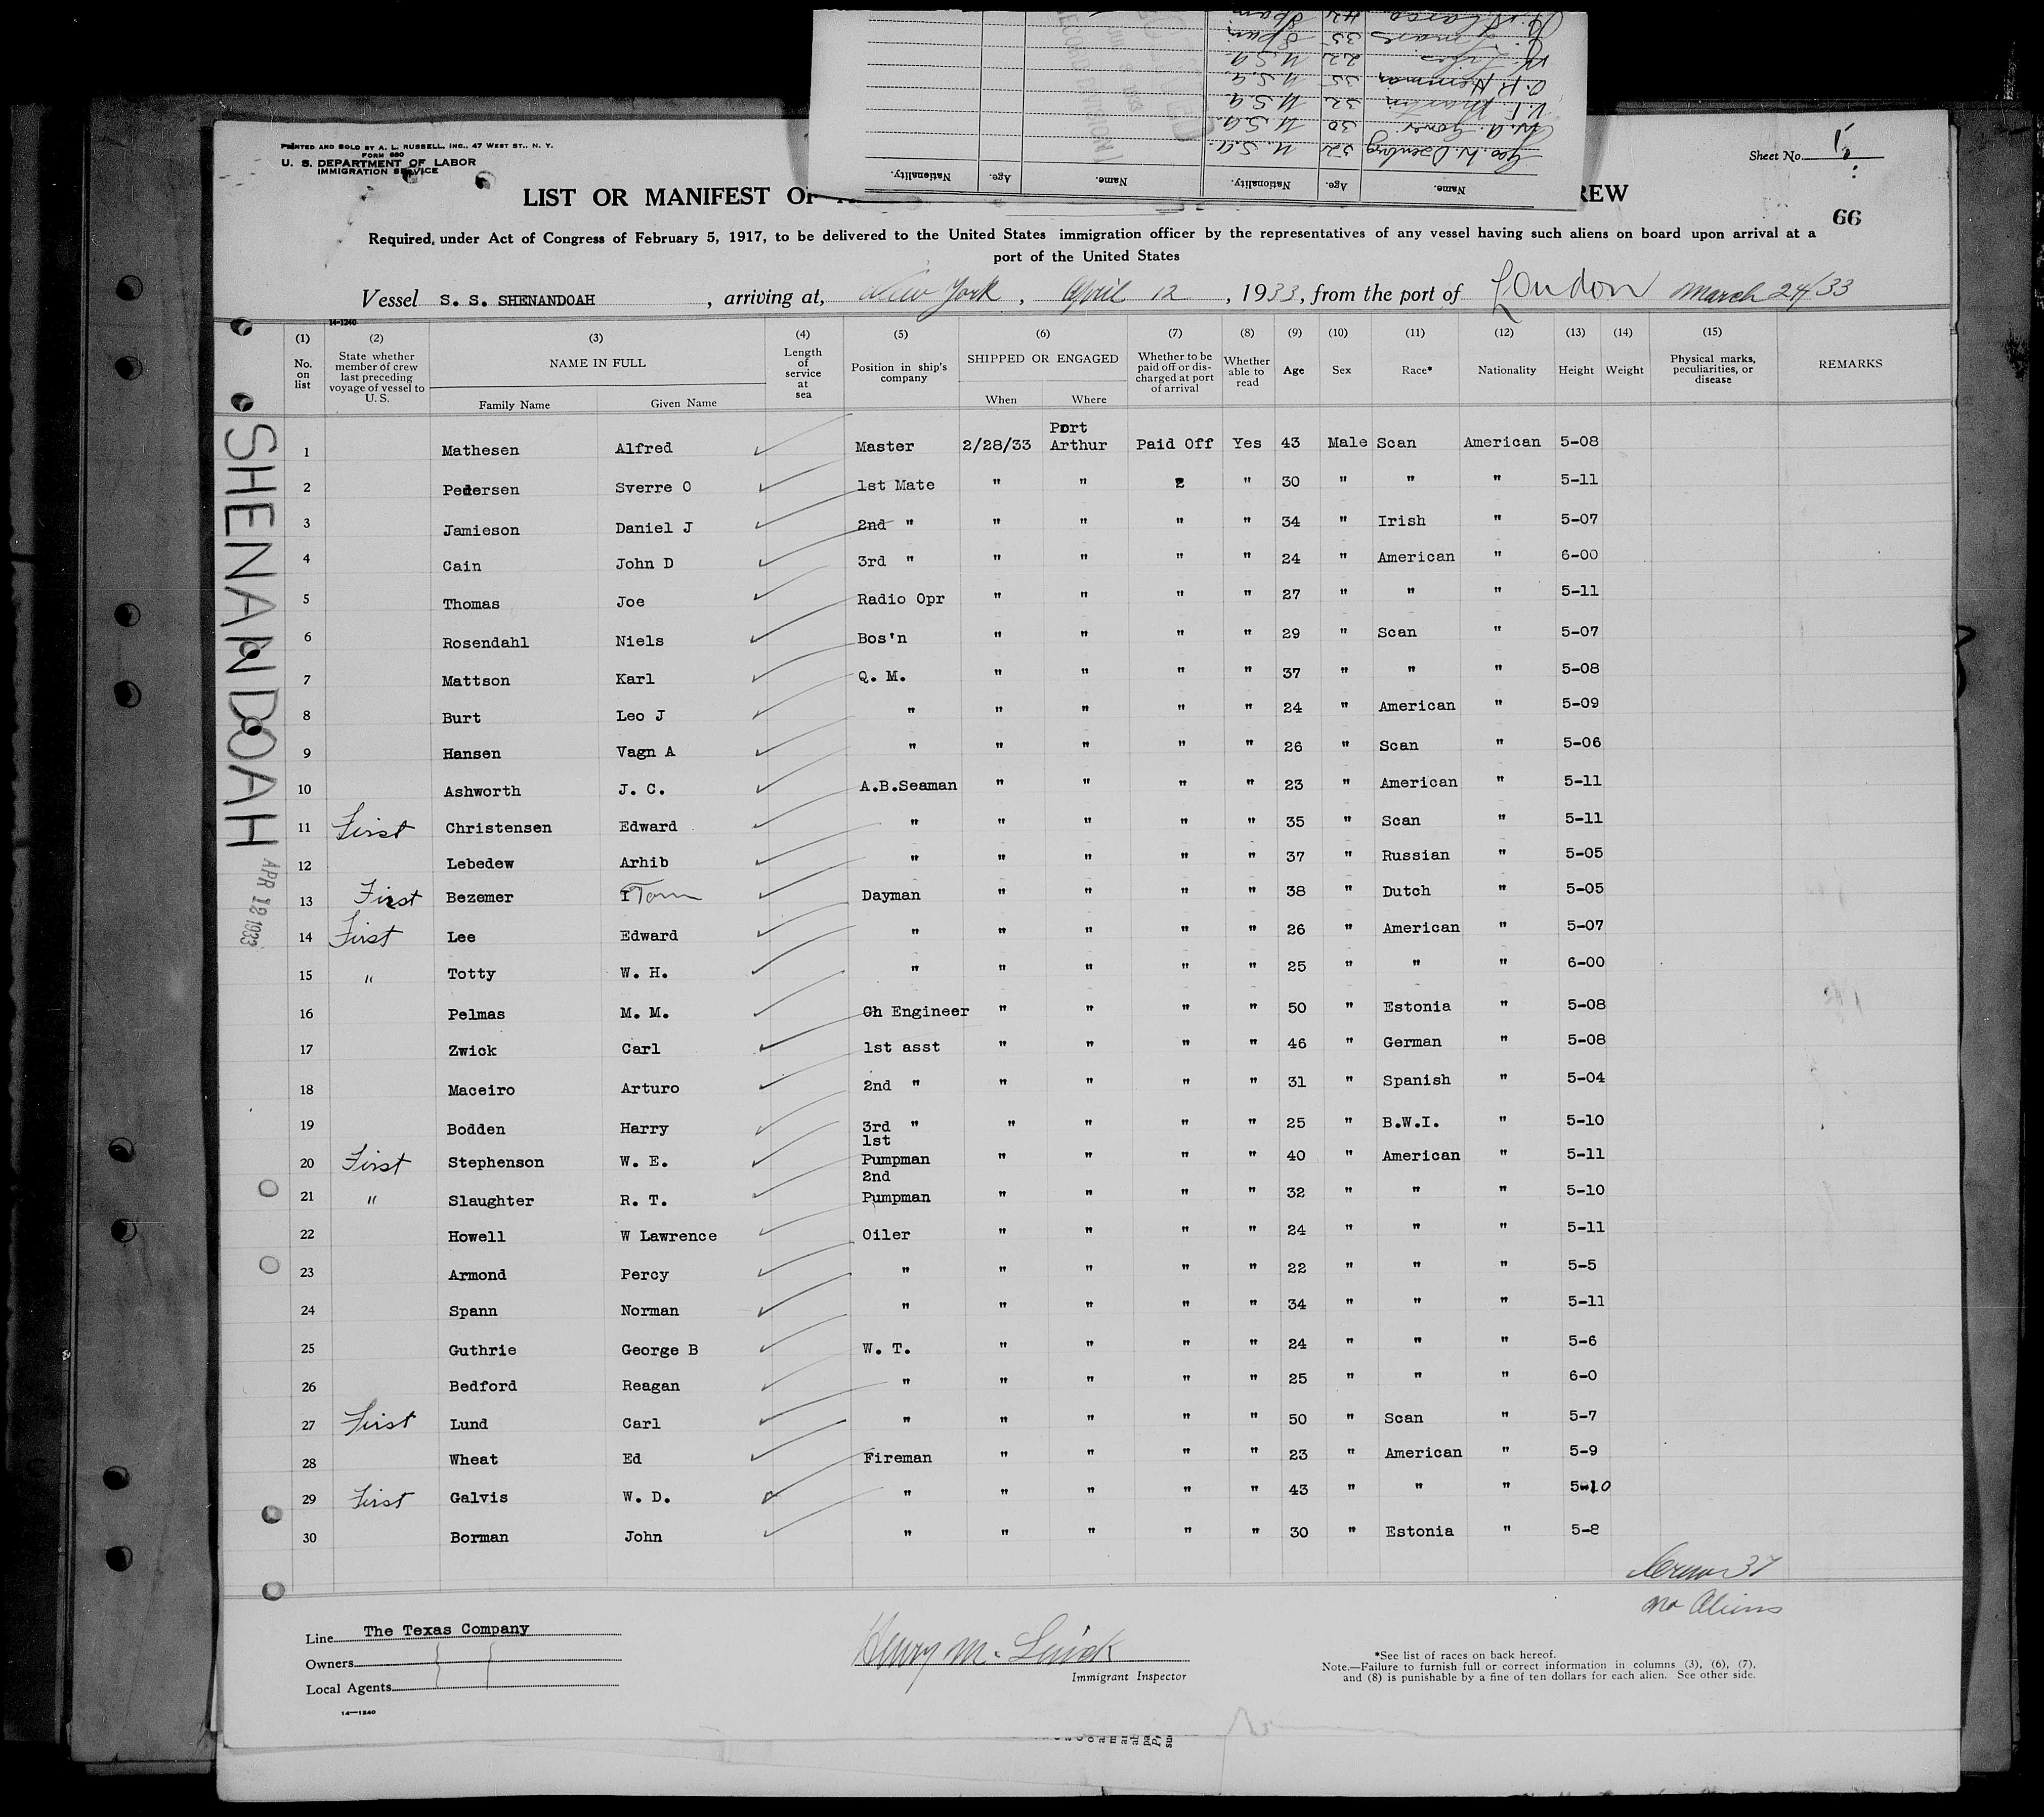 PRINTED AND SOLD BY A. L. RUSSELL, INC., 47 WEST ST., N. Y.
FORM 680
U. S. DEPARTMENT OF LABOR
IMMIGRATION SERVICE
Name. Age. Nationality. Name. Age. Nationality.
32 U.S.A.
30 U.S.A.
V.F. Martin 32 U.S.A.
35 U.S.A.
22 U.S.A.
35 Spain
44 Spain
SECOND DIVISION
Sheet No. 1
LIST OR MANIFEST OF
REW
66
Required, under Act of Congress of February 5, 1917, to be delivered to the United States immigration officer by the representatives of any vessel having such aliens on board upon arrival at a
port of the United States
Vessel S. S. SHENANDOAH, arriving at, New York, April 12, 1933, from the port of London March 24/33
14-1240
(1) No. on list
(2) State whether member of crew last preceding voyage of vessel to U. S.
(3) NAME IN FULL Family Name Given Name
(4) Length of service at sea
(5) Position in ship's company
(6) SHIPPED OR ENGAGED When Where
(7) Whether to be paid off or discharged at port of arrival
(8) Whether able to read
(9) Age
(10) Sex
(11) Race*
(12) Nationality
(13) Height
(14) Weight
(15) Physical marks, peculiarities, or disease
REMARKS
1 Mathesen Alfred Master 2/28/33 Port Arthur Paid Off Yes 43 Male Scan American 5-08
2 Pedersen Sverre O 1st Mate " " " " 30 " " " 5-11
3 Jamieson Daniel J 2nd " " " " " 34 " Irish " 5-07
4 Cain John D 3rd " " " " " 24 " American " 6-00
5 Thomas Joe Radio Opr " " " " 27 " " " 5-11
6 Rosendahl Niels Bos'n " " " " 29 " Scan " 5-07
7 Mattson Karl Q. M. " " " " 37 " " " 5-08
8 Burt Leo J " " " " " 24 " American " 5-09
9 Hansen Vagn A " " " " " 26 " Scan " 5-06
10 Ashworth J. C. A.B.Seaman " " " " 23 " American " 5-11
11 First Christensen Edward " " " " " 35 " Scan " 5-11
12 Lebedew Arhib " " " " " 37 " Russian " 5-05
13 First Bezemer Tom Dayman " " " " 38 " Dutch " 5-05
14 First Lee Edward " " " " " 26 " American " 5-07
15 " Totty W. H. " " " " " 25 " " " 6-00
16 Pelmas M. M. Ch Engineer " " " " 50 " Estonia " 5-08
17 Zwick Carl 1st asst " " " " 46 " German " 5-08
18 Maceiro Arturo 2nd " " " " " 31 " Spanish " 5-04
19 Bodden Harry 3rd " " " " " 25 " B.W.I. " 5-10
20 First Stephenson W. E. 1st Pumpman " " " " 40 " American " 5-11
21 " Slaughter R. T. 2nd Pumpman " " " " 32 " " " 5-10
22 Howell W Lawrence Oiler " " " " 24 " " " 5-11
23 Armond Percy " " " " " 22 " " " 5-5
24 Spann Norman " " " " " 34 " " " 5-11
25 Guthrie George B W. T. " " " " 24 " " " 5-6
26 Bedford Reagan " " " " " 25 " " " 6-0
27 First Lund Carl " " " " " 50 " Scan " 5-7
28 Wheat Ed Fireman " " " " 23 " American " 5-9
29 First Galvis W. D. " " " " " 43 " " " 5-10
30 Borman John " " " " " 30 " Estonia " 5-8
SHENANDOAH
APR 12 1933
Crew 37
no Aliens
Line The Texas Company
Owners
Local Agents
14-1240
Immigrant Inspector
*See list of races on back hereof.
Note.—Failure to furnish full or correct information in columns (3), (6), (7),
and (8) is punishable by a fine of ten dollars for each alien. See other side.